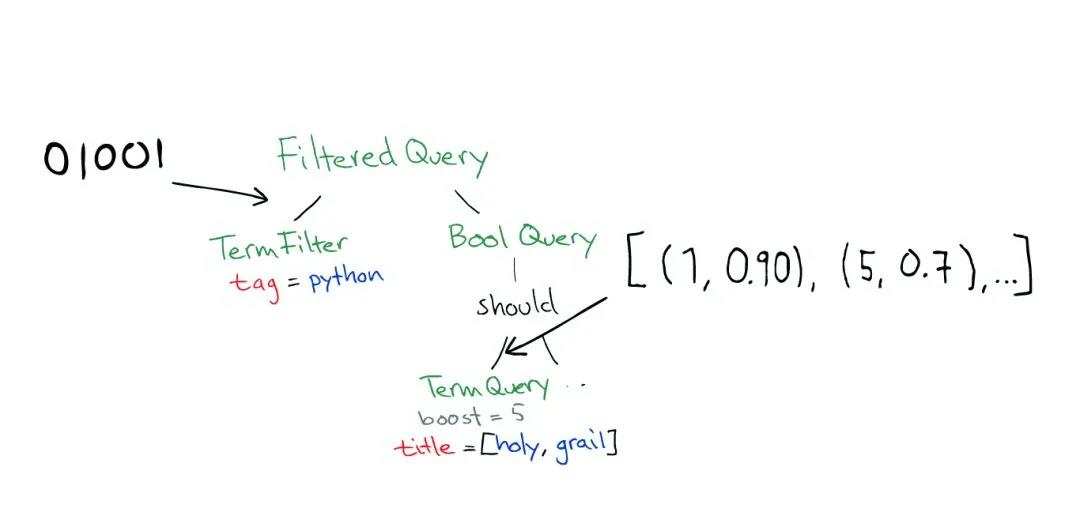 01001
Filtered Query
TermFilter
tag = python
Bool Query
[(1, 0.90), (5, 0.7),...]
should
TermQuery ..
boost = 5
title = [holy, grail]